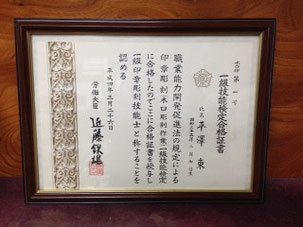 第一号
一級技能検定合格証書
氏名 平澤 東
職業能力開発促進法の規定による
印章彫刻(木口彫刻作業)一級技能検定
に合格したのでここに合格証書を授与し
一級印章彫刻技能士と称することを
認める
平成四年三月二十六日
労働大臣 近藤鉄雄